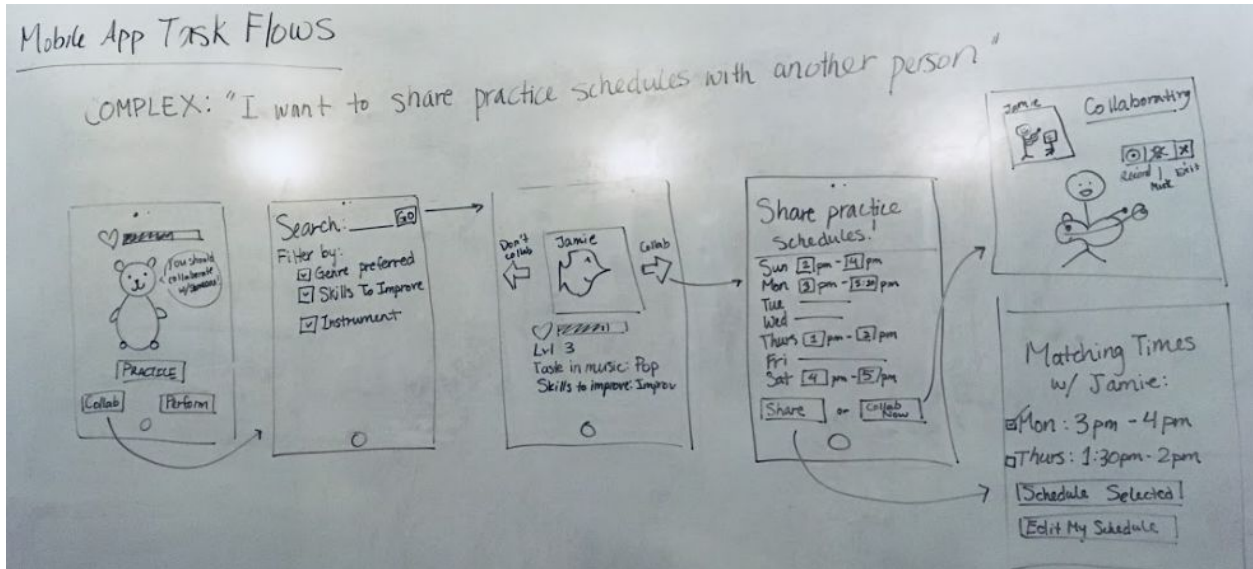 Mobile App Task Flows
COMPLEX: "I want to share practice schedules with another person"
You should
collaborate
w/someone!
PRACTICE
Collab
Perform
Search: GO
Filter by:
Genre preferred
Skills To Improve
Instrument
Don't
collab
Jamie
Collab
Lvl 3
Taste in music: Pop
Skills to improve: Improv
Share practice
schedules!
Sun 2 pm - 4 pm
Mon 3 pm - 5:30 pm
Tue
Wed
Thurs 1 pm - 2 pm
Fri
Sat 4 pm - 5 pm
Share or Collab Now
Jamie
Collaborating
Record
Mute
Exit
Matching Times
w/ Jamie:
Mon: 3pm - 4pm
Thurs: 1:30pm - 2pm
Schedule Selected
Edit My Schedule